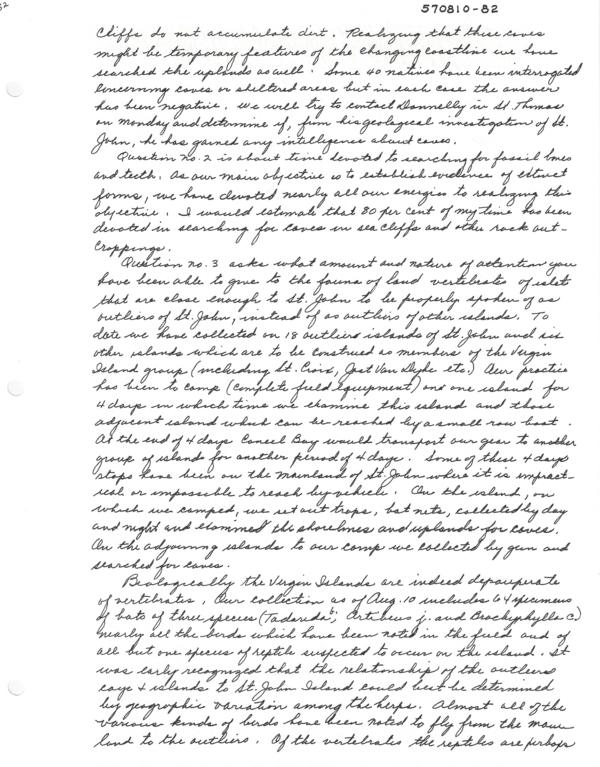 570810-82
Cliffs do not accumulate dirt. Realizing that these caves
might be temporary features of the changing coastline we have
searched the uplands as well. Some 40 natives have been interrogated
concerning caves or sheltered areas but in each case the answer
has been negative. We will try to contact Donnelly in St. Thomas
on Monday and determine if, from his geological investigation of St.
John, he has gained any intelligence about caves.
Question no. 2 is about time devoted to searching for fossil bones
and teeth. As our main objective is to establish evidence of extinct
forms, we have devoted nearly all our energies to realizing this
objective. I would estimate that 80 per cent of my time has been
devoted in searching for caves in sea cliffs and other rock out-
croppings.
Question no. 3 asks what amount and nature of attention you
have been able to give to the fauna of land vertebrates of islets
that are close enough to St. John to be properly spoken of as
outliers of St. John, instead of as outliers of other islands. To
date we have collected on 18 outliers islands of St. John and six
other islands which are to be construed as members of the Virgin
Island group (including St. Croix, Jost Van Dyke etc.) Our practice
has been to camp (complete field equipment) on one island for
4 days in which time we examine this island and those
adjacent island which can be reached by a small row boat.
At the end of 4 days Caneel Bay would transport our gear to another
group of islands for another period of 4 days. Some of these 4 days
stops have been on the mainland of St. John where it is impract-
ical or impossible to reach by vehicle. On the island, on
which we camped, we set out traps, bat nets, collected by day
and night and examined the shorelines and uplands for caves.
On the adjourning islands to our camp we collected by gun and
searched for caves.
Biologically the Virgin Islands are indeed depauperate
of vertebrates. Our collection as of Aug. 10 includes 64 specimens
of bats of three species (Tadarida b; Artibeus j. and Brachyphylla c.)
nearly all the birds which have been noted in the field and of
all but one species of reptile suspected to occur on the island. It
was early recognized that the relationship of the outliers
cays & islands to St. John Island could best be determined
by geographic variation among the herps. Almost all of the
various kinds of birds have been noted to fly from the main
land to the outliers. Of the vertebrates the reptiles are perhaps